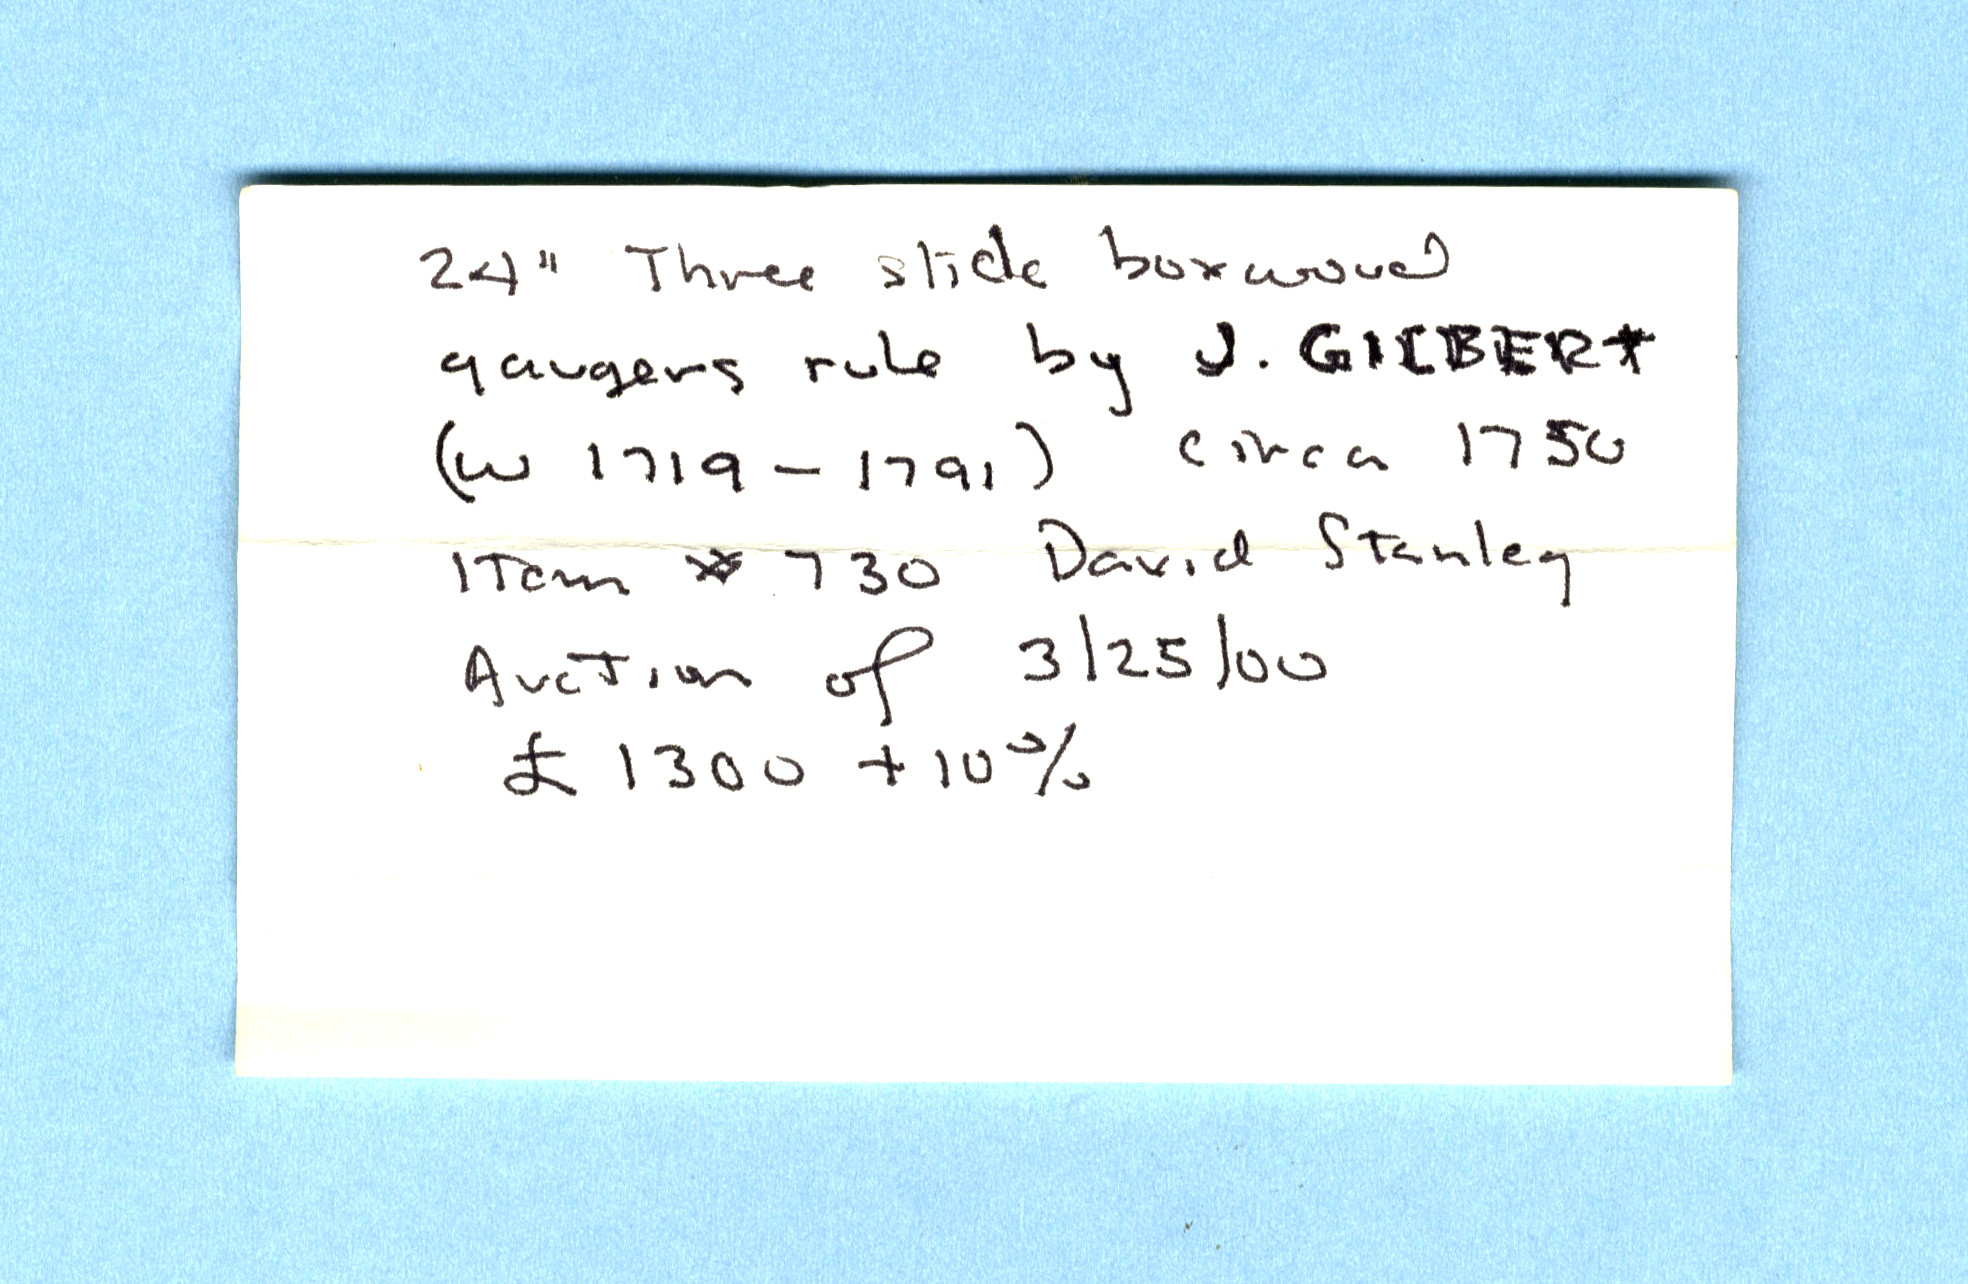 24" Three slide boxwood
gaugers rule by J. GILBERT
(w 1719 - 1791) circa 1750
ITem # 730 David Stanley
AucTion of 3/25/00
£ 1300 + 10%